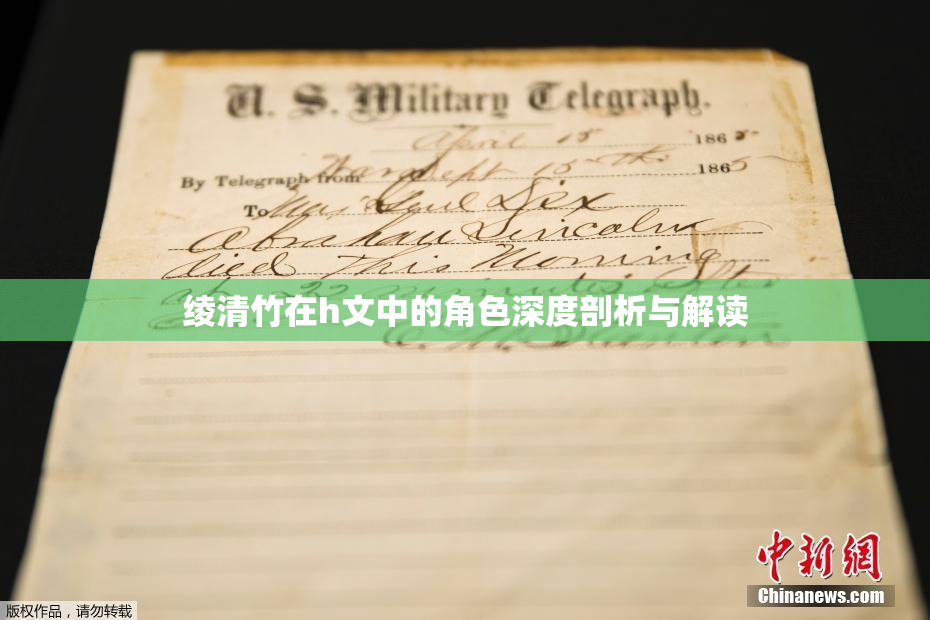 U. S. Military Telegraph.
April 15 1865
By Telegraph from War Dept 15th 1865
To Maj Genl Dix
Abraham Lincoln
died This Morning
at 22 minutes after
绫清竹在h文中的角色深度剖析与解读
E. M. Stanton
中新网
Chinanews.com
版权作品，请勿转载